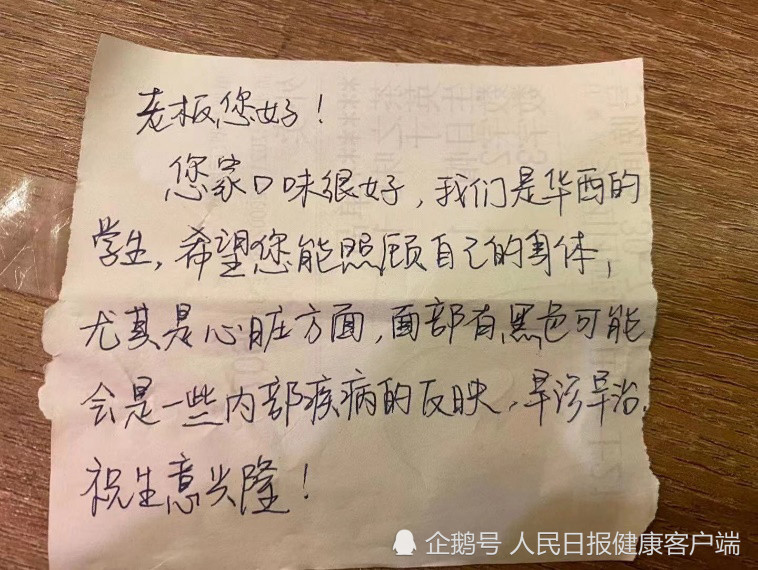 老板您好！
您家口味很好，我们是华西的
学生，希望您能照顾自己的身体，
尤其是心脏方面，面部有黑色可能
会是一些内部疾病的反映，早诊早治.
祝生意兴隆！
企鹅号 人民日报健康客户端